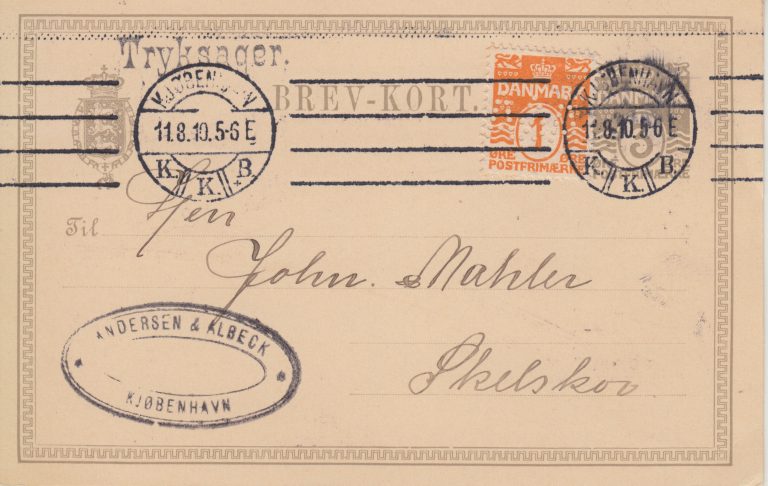 Tryksager.
BREV-KORT.
KJØBENHAVN
11.8.10.5-6 E
K. K. B.
DANMARK
1
ØRE ØRE
POSTFRIMÆRKE
KJØBENHAVN
11.8.10.5-6 E
K. K. B.
3
Til
Herr
John. Mahler
Skelskov
ANDERSEN & ALBECK
KJØBENHAVN